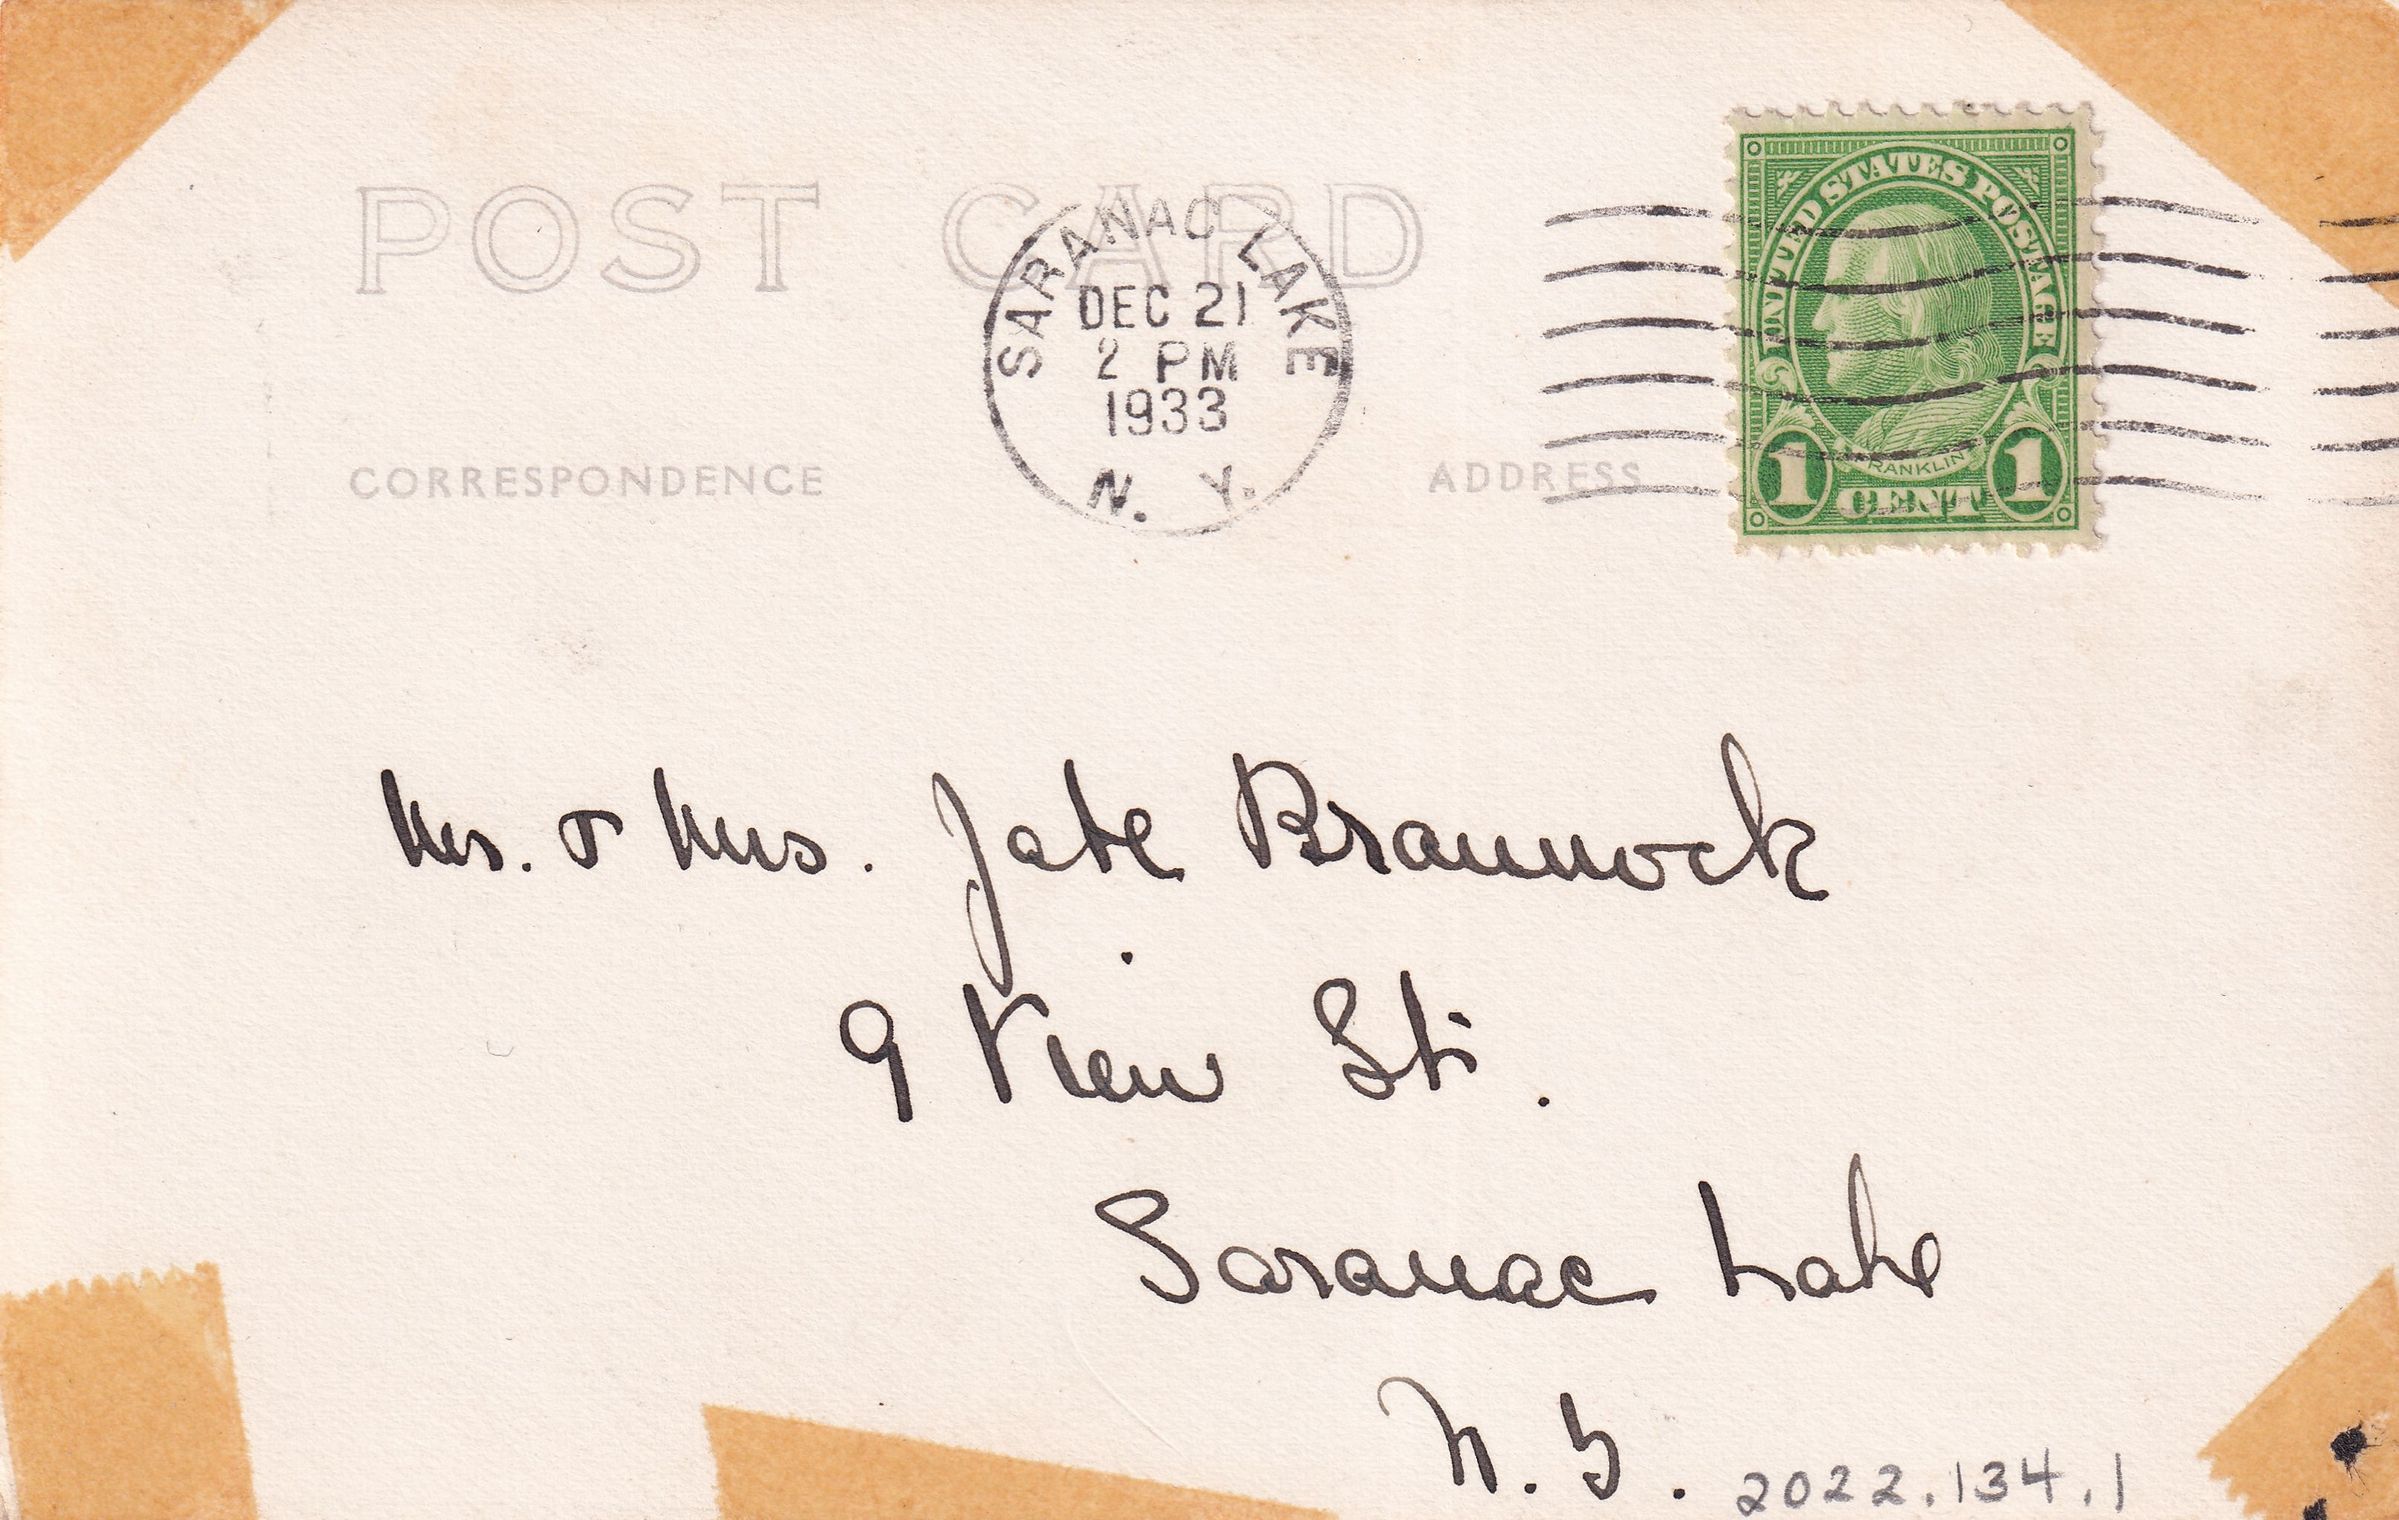 POST CARD
SARANAC LAKE
DEC 21
2 PM
1933
N. Y.
UNITED STATES POSTAGE
FRANKLIN
1 CENT 1
CORRESPONDENCE
ADDRESS
Mr. & Mrs. Jate Brannock
9 View St.
Saranac Lake
N. Y.
2022.134.1